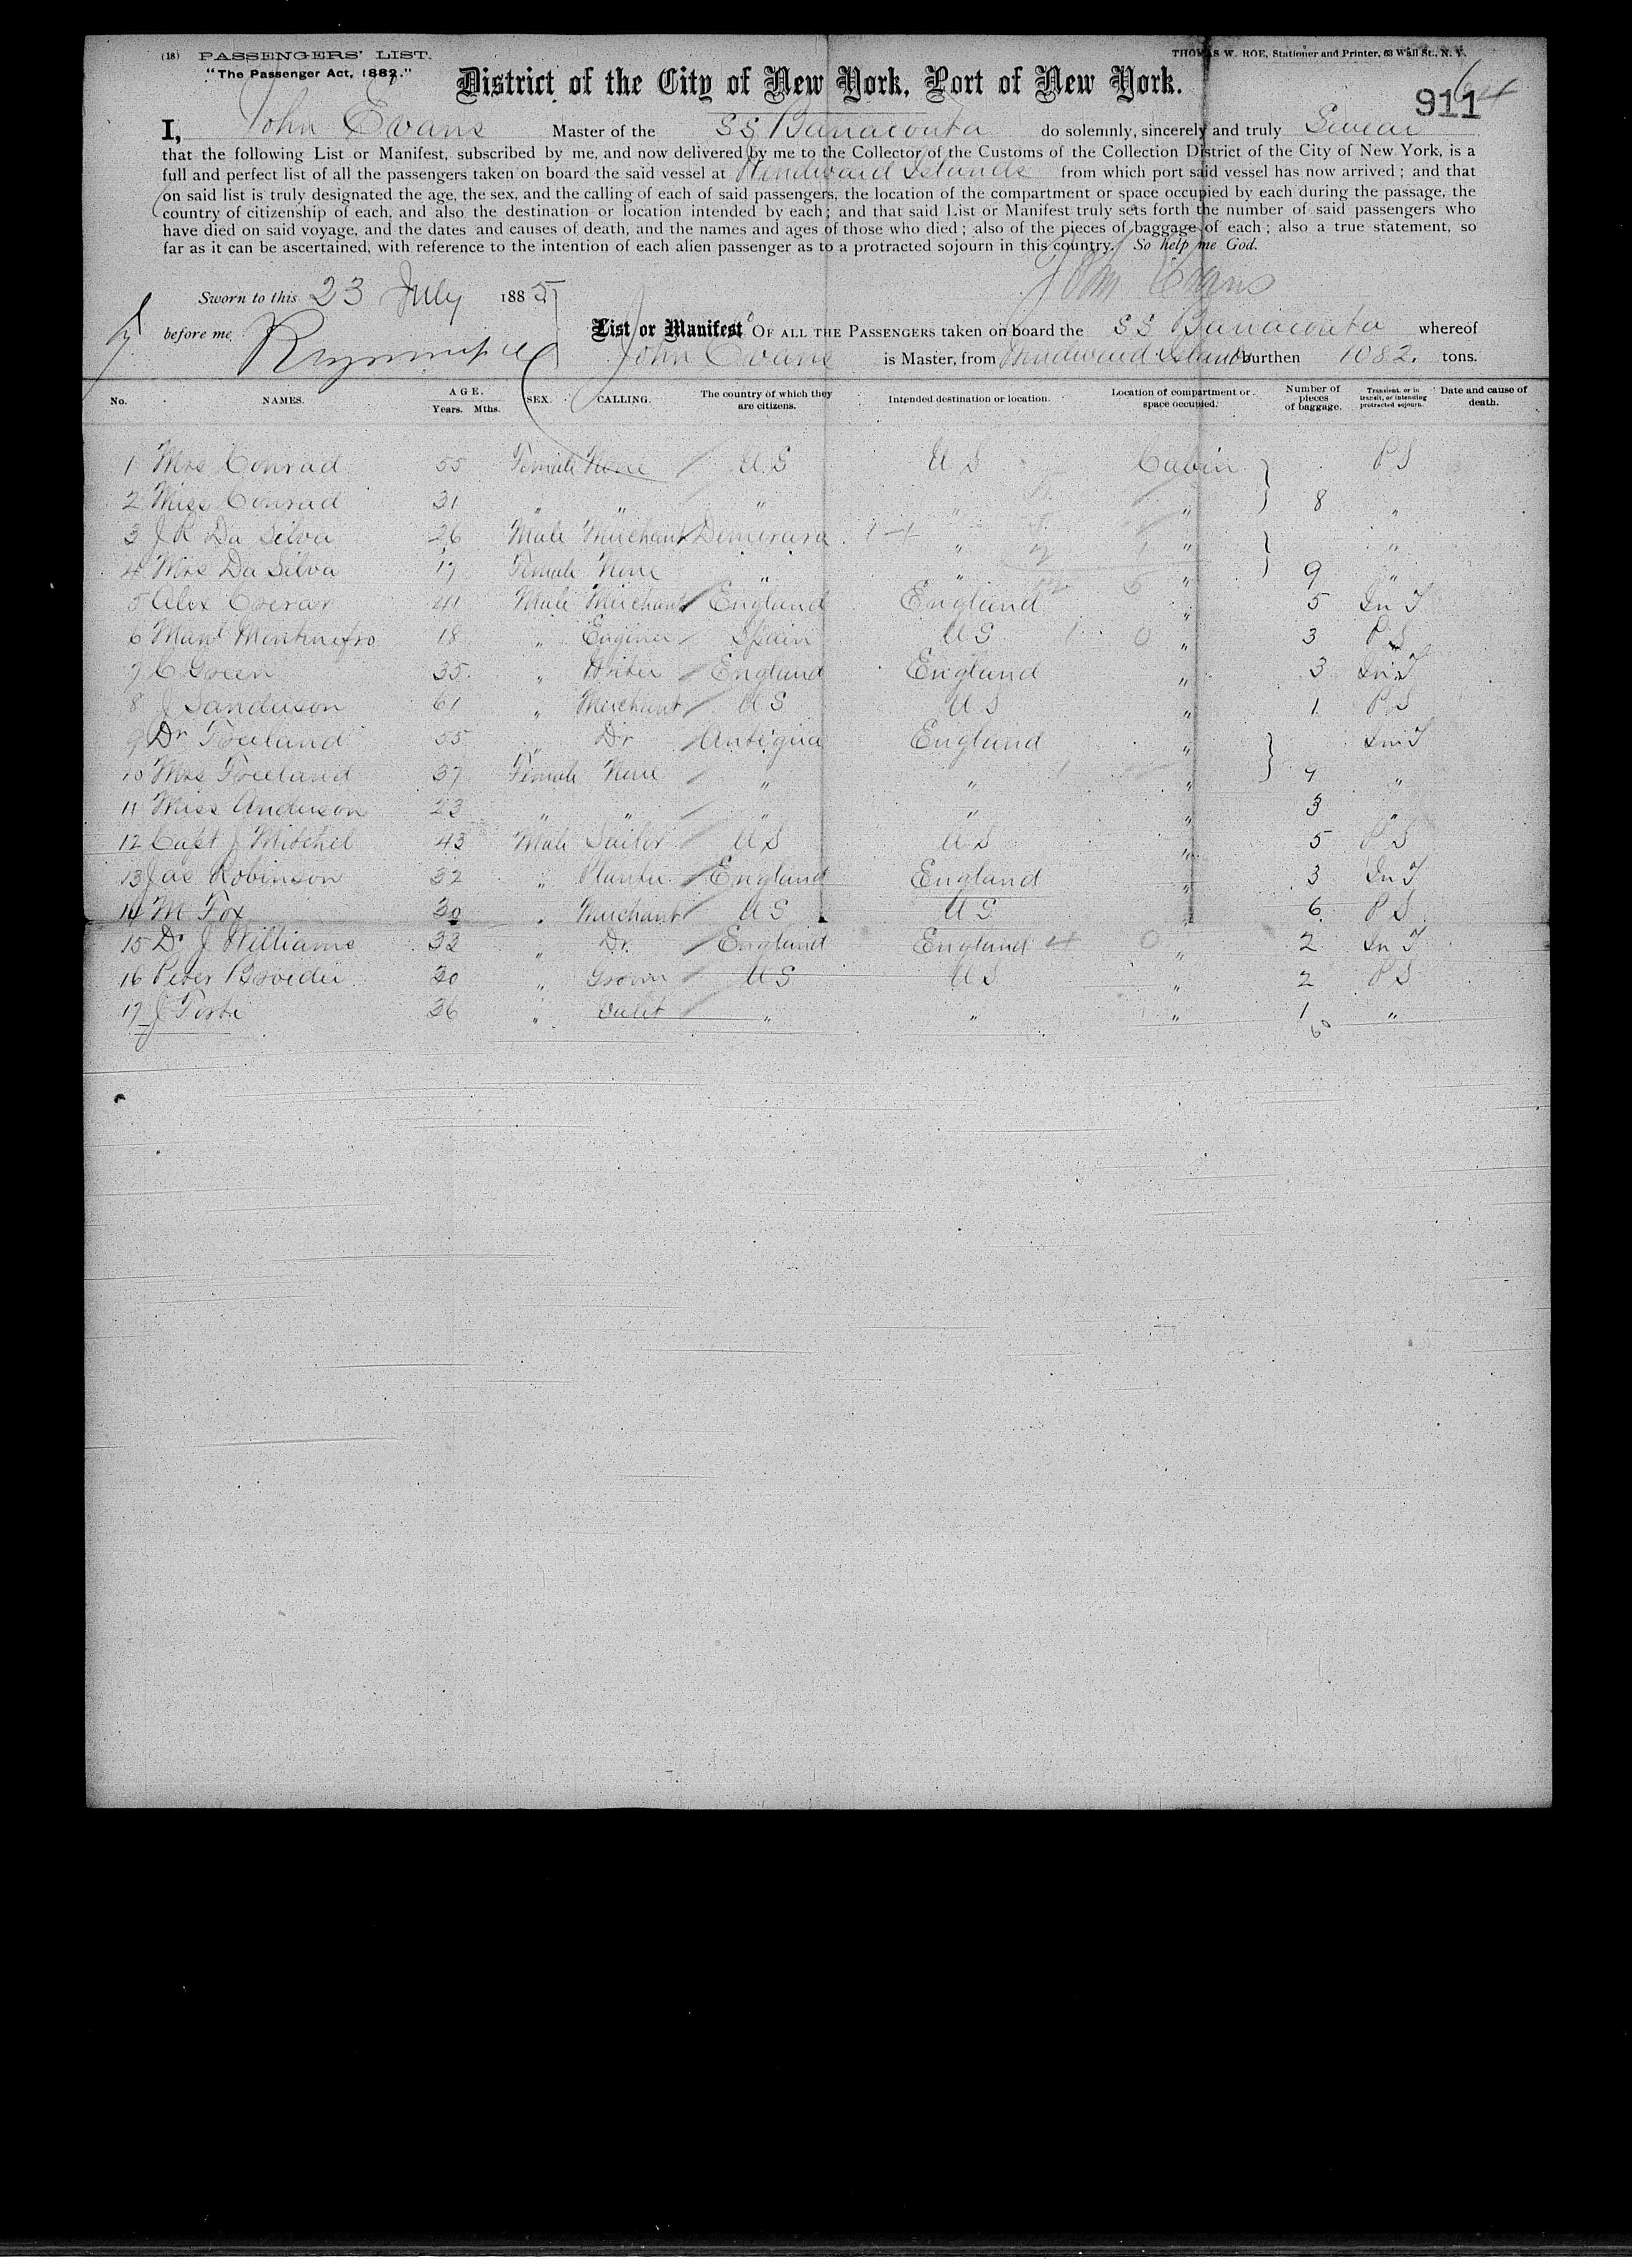 (18) PASSENGERS' LIST.
THOMAS W. ROE, Stationer and Printer, 63 Wall St., N. Y.
"The Passenger Act, 1882."
District of the City of New York, Port of New York.
64
911
I, John Evans Master of the SS Barracouta do solemnly, sincerely and truly Swear
that the following List or Manifest, subscribed by me, and now delivered by me to the Collector of the Customs of the Collection District of the City of New York, is a
full and perfect list of all the passengers taken on board the said vessel at Windward Islands from which port said vessel has now arrived; and that
on said list is truly designated the age, the sex, and the calling of each of said passengers, the location of the compartment or space occupied by each during the passage, the
country of citizenship of each, and also the destination or location intended by each; and that said List or Manifest truly sets forth the number of said passengers who
have died on said voyage, and the dates and causes of death, and the names and ages of those who died; also of the pieces of baggage of each; also a true statement, so
far as it can be ascertained, with reference to the intention of each alien passenger as to a protracted sojourn in this country. So help me God.
John Evans
Sworn to this 23 July 1885
before me
List or Manifest OF ALL THE PASSENGERS taken on board the SS Barracouta whereof
John Evans is Master, from Windward Islands burthen 1082. tons.
No. NAMES. AGE. Years. Mths. SEX. CALLING. The country of which they are citizens. Intended destination or location. Location of compartment or space occupied. Number of pieces of baggage. Transient, or in transit, or intending protracted sojourn. Date and cause of death.
1 Mrs Conrad 55 Female None U S U S Cabin P S
2 Miss Conrad 31 " " " " " 8 "
3 J R Da Silva 26 Male Merchant Demerara " " "
4 Mrs Da Silva 17 Female None " " " 9 "
5 Alex 41 Male Merchant England England " 5 In T
6 Manl 18 " Engineer Spain U S " 3 P S
7 C Green 35 " Writer England England " 3 In T
8 J Sanderson 61 " Merchant U S U S " 1 P S
9 Dr Freeland 55 " Dr Antigua England " In T
10 Mrs Freeland 37 Female None " " " 7 "
11 Miss Anderson 23 " " " " " 3 "
12 Capt J Mitchel 43 Male Sailor U S U S " 5 P S
13 Jas Robinson 32 " Planter England England " 3 In T
14 M Fox 30 " Merchant U S U S " 6 P S
15 Dr J Williams 32 " Dr. England England " 2 In T
16 Peter 30 " Groom U S U S " 2 P S
17 J 36 " Valet " " " 1 "